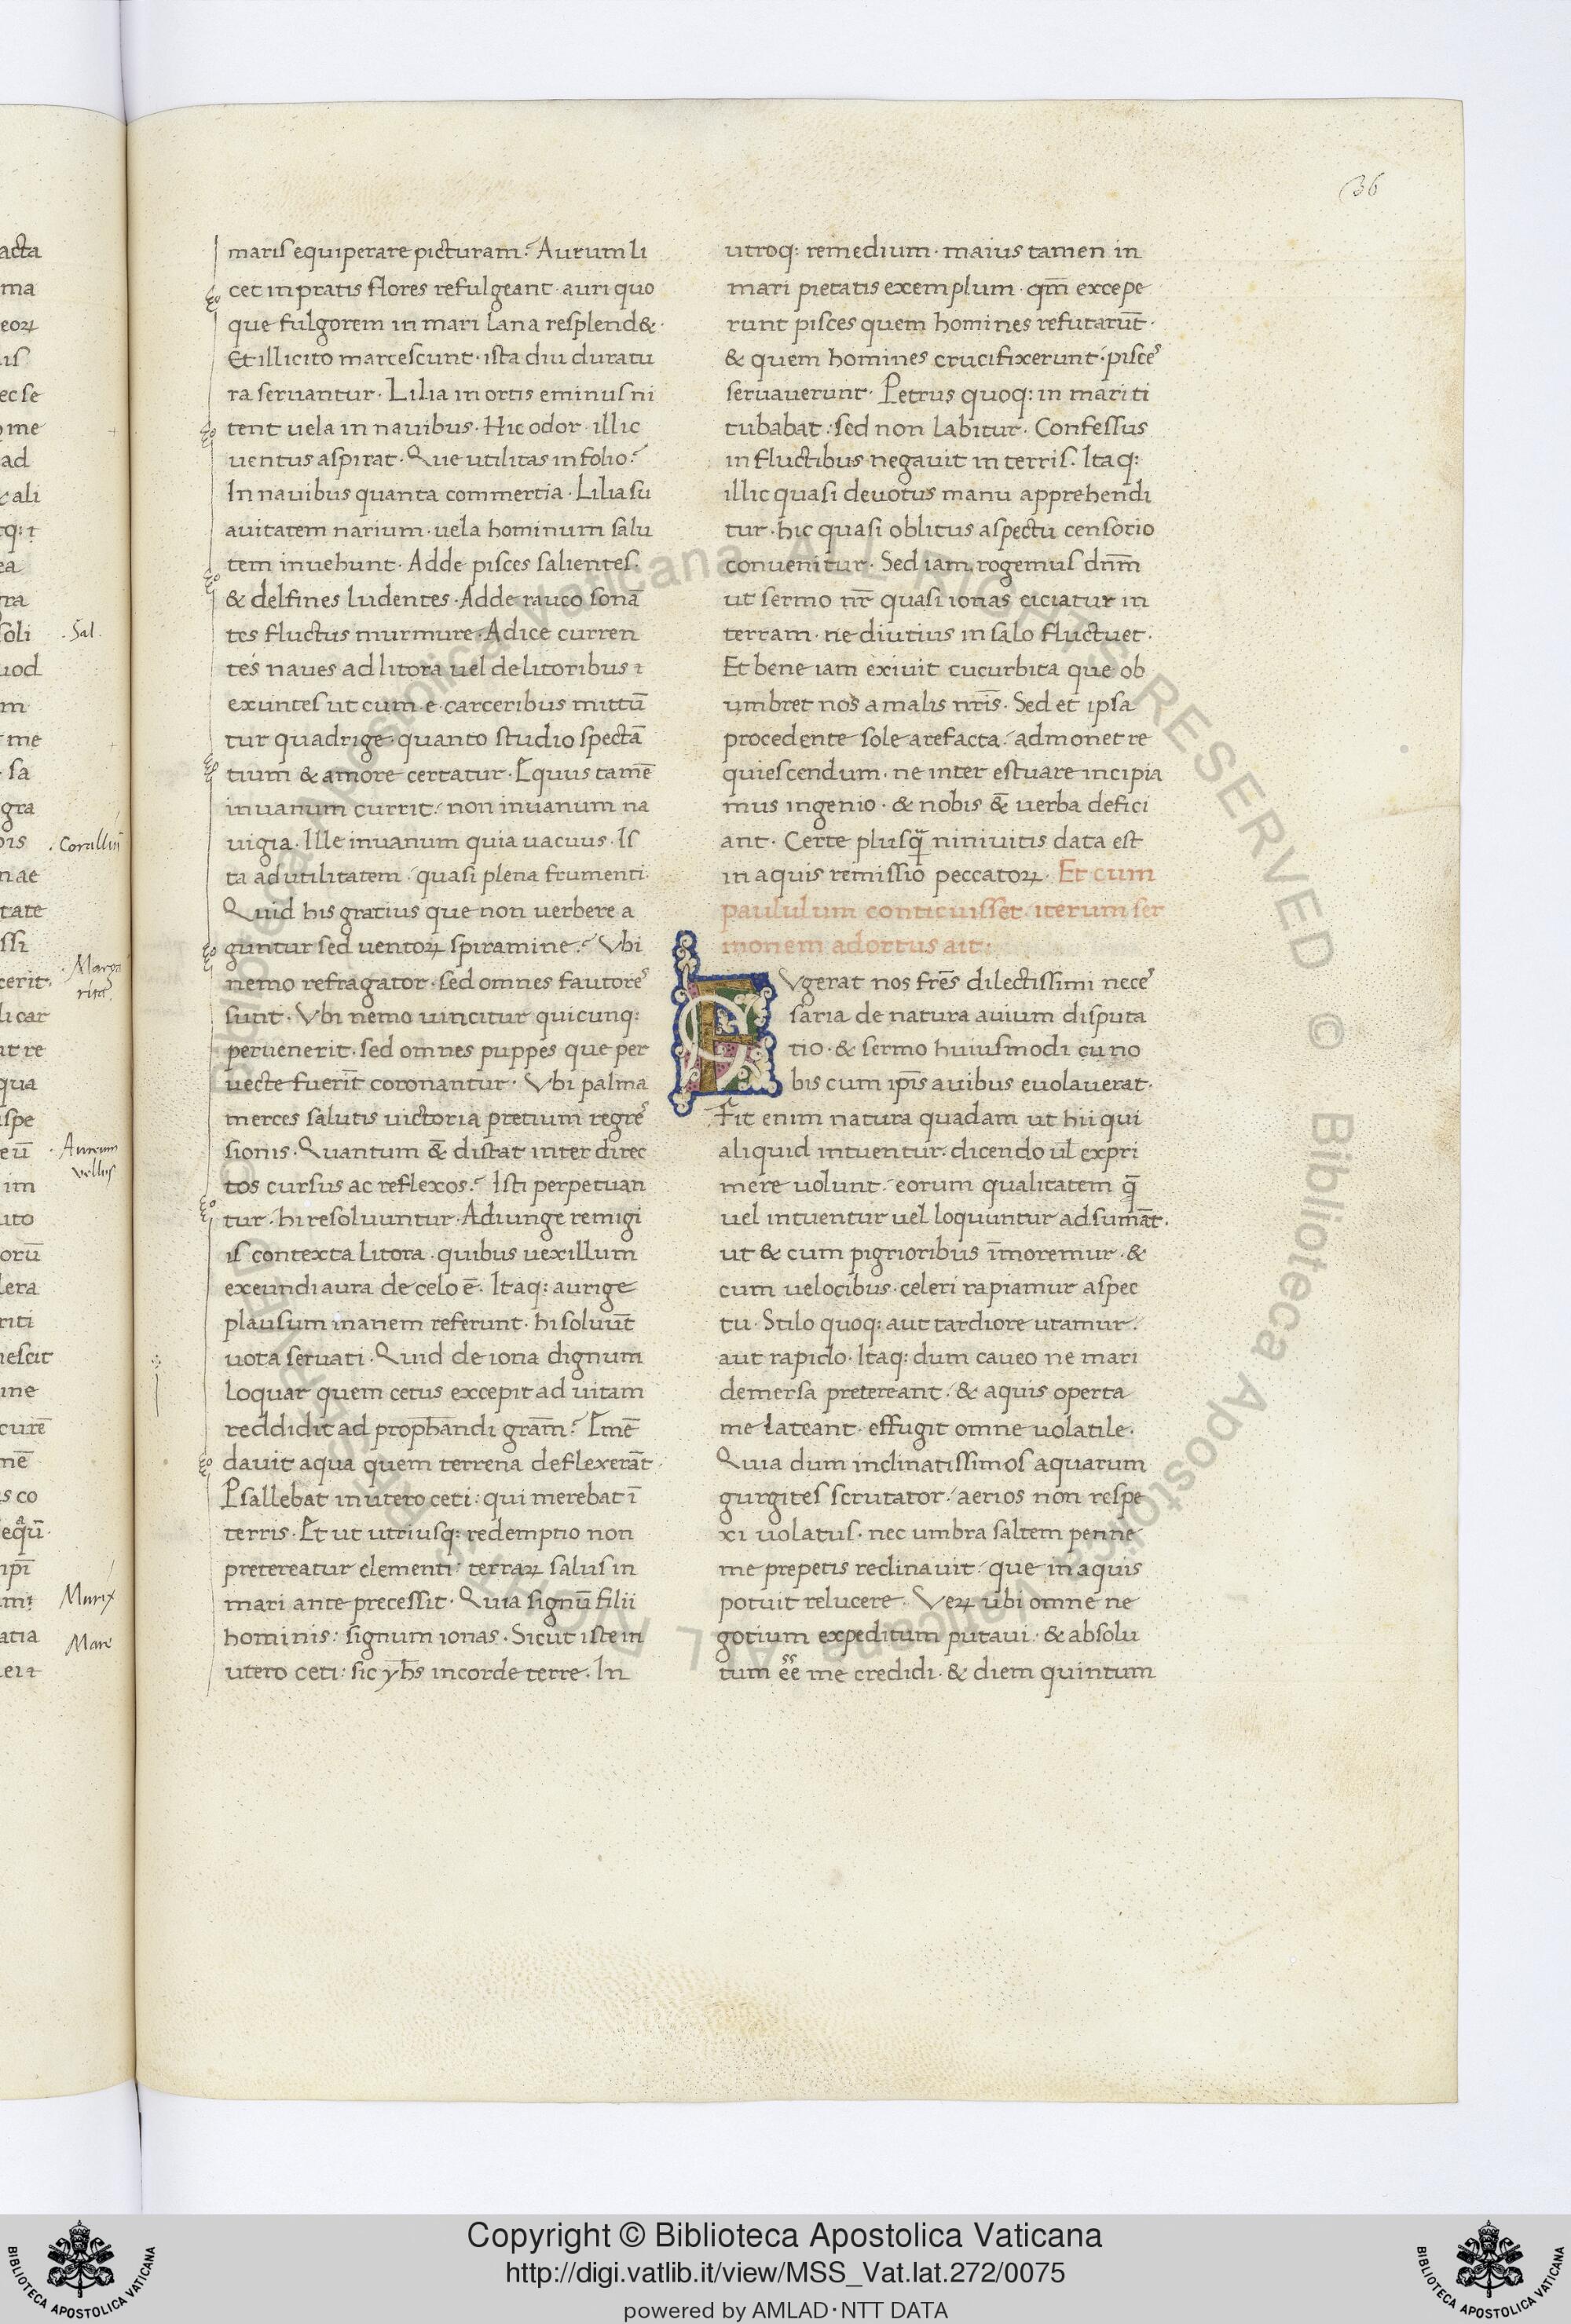 36
maris equiperare picturam? Aurum li
cet in pratis flores refulgeant · auri quo
que fulgorem in mari lana resplend& ·
Et illic ito marcescunt · ista diu duratu
ra servantur · Lilia in ortis eminus ni
tent vela in navibus · Hic odor · illic
ventus aspirat · Que utilitas in folio?
In navibus quanta commertia · Lilia su
avitatem narium · vela hominum salu
tem invehunt · Adde pisces salientes ·
& delfines ludentes · Adde rauco sonā
tes fluctus murmure · Adice curren
tes naves ad litora vel de litoribus ⁊
exuntes ut cum e carceribus mittū
tur quadrige · quanto studio spectā
tium & amore certatur · Equus tamē
in vanum currit: non in vanum na
vigia · Ille in vanum quia vacuus · Is
ta ad utilitatem · quasi plena frumenti ·
Quid his gratius que non verbere a
guntur sed ventoꝝ spiramine? Vbi
nemo refragator · sed omnes fautores
sunt · Vbi nemo vincitur quicunq:
pervenerit · sed omnes puppes que per
vecte fuerīt coronantur · Vbi palma
merces salutis victoria pretium regres
sionis · Quantum &̄ distat inter direc
tos cursus ac reflexos? Isti perpetuan
tur · hi resolvuntur · Adiunge remigi
is contexta litora · quibus vexillum
exeundi aura de celo ē · Itaq: aurige
plausum inanem referunt · hi solvūt
vota servati · Quid de iona dignum
loquar quem cetus excepit ad vitam
reddidit ad proph̄andi grām? Emē
davit aqua quem terrena deflexerāt ·
Psallebat in utero ceti: qui merebat ī
terris · Et ut utriusq: redemptio non
pretereatur elementi: terraꝝ salus in
mari ante precessit · Quia signū filii
hominis: signum ionas · Sicut iste in
utero ceti: sic yh̄s in corde terre · In
utroq: remedium · maius tamen in
mari pietatis exemplum · qm̄ excepe
runt pisces quem homines refutarūt ·
& quem homines crucifixerunt · pisces
servaverunt · Petrus quoq: in mari ti
tubabat: sed non labitur · Confessus
in fluctibus negavit in terris · Itaq:
illic quasi devotus manu apprehendi
tur · hic quasi oblitus aspectu censorio
convenitur · Sed iam rogemus dn̄m
ut sermo nr̄ quasi ionas eiciatur in
terram · ne diutius in salo fluctuet ·
Et bene iam exivit cucurbita que ob
umbret nos a malis nr̄is · Sed et ipsa
procedente sole arefacta · admonet re
quiescendum · ne inter estuare incipia
mus ingenio · & nobis &̄ verba defici
ant · Certe plusq̄ ninivitis data est
in aquis remissio peccatoꝝ · Et cum
paululum conticuisset · iterum ser
monem adortus ait ·
FVgerat nos frēs dilectissimi neces
saria de natura avium disputa
tio · & sermo huiusmodi cu no
bis cum ip̄is avibus evolaverat ·
Fit enim natura quadam ut hii qui
aliquid intuentur · dicendo ul̄ expri
mere volunt · eorum qualitatem q̄
vel intuentur vel loquuntur adsumāt ·
ut & cum pigrioribus īmoremur · &
cum velocibus · celeri rapiamur aspec
tu · Stilo quoq: aut tardiore utamur ·
aut rapido · Itaq: dum caveo ne mari
demersa pretereant · & aquis operta
me lateant · effugit omne volatile ·
Quia dum inclinatissimos aquarum
gurgites scrutator · aerios non respe
xi volatus · nec umbra saltem penne
me prepetis reclinavit · que in aquis
potuit relucere · Veꝝ ubi omne ne
gotium expeditum putavi · & absolu
tum ēē me credidi · & diem quintum
· Sal ·
· Corallū
· Marga
rite
· Aureum
vellus
Murix
Mare
Copyright © Biblioteca Apostolica Vaticana
http://digi.vatlib.it/view/MSS_Vat.lat.272/0075
powered by AMLAD · NTT DATA
BIBLIOTECA APOSTOLICA VATICANA
BIBLIOTECA APOSTOLICA VATICANA